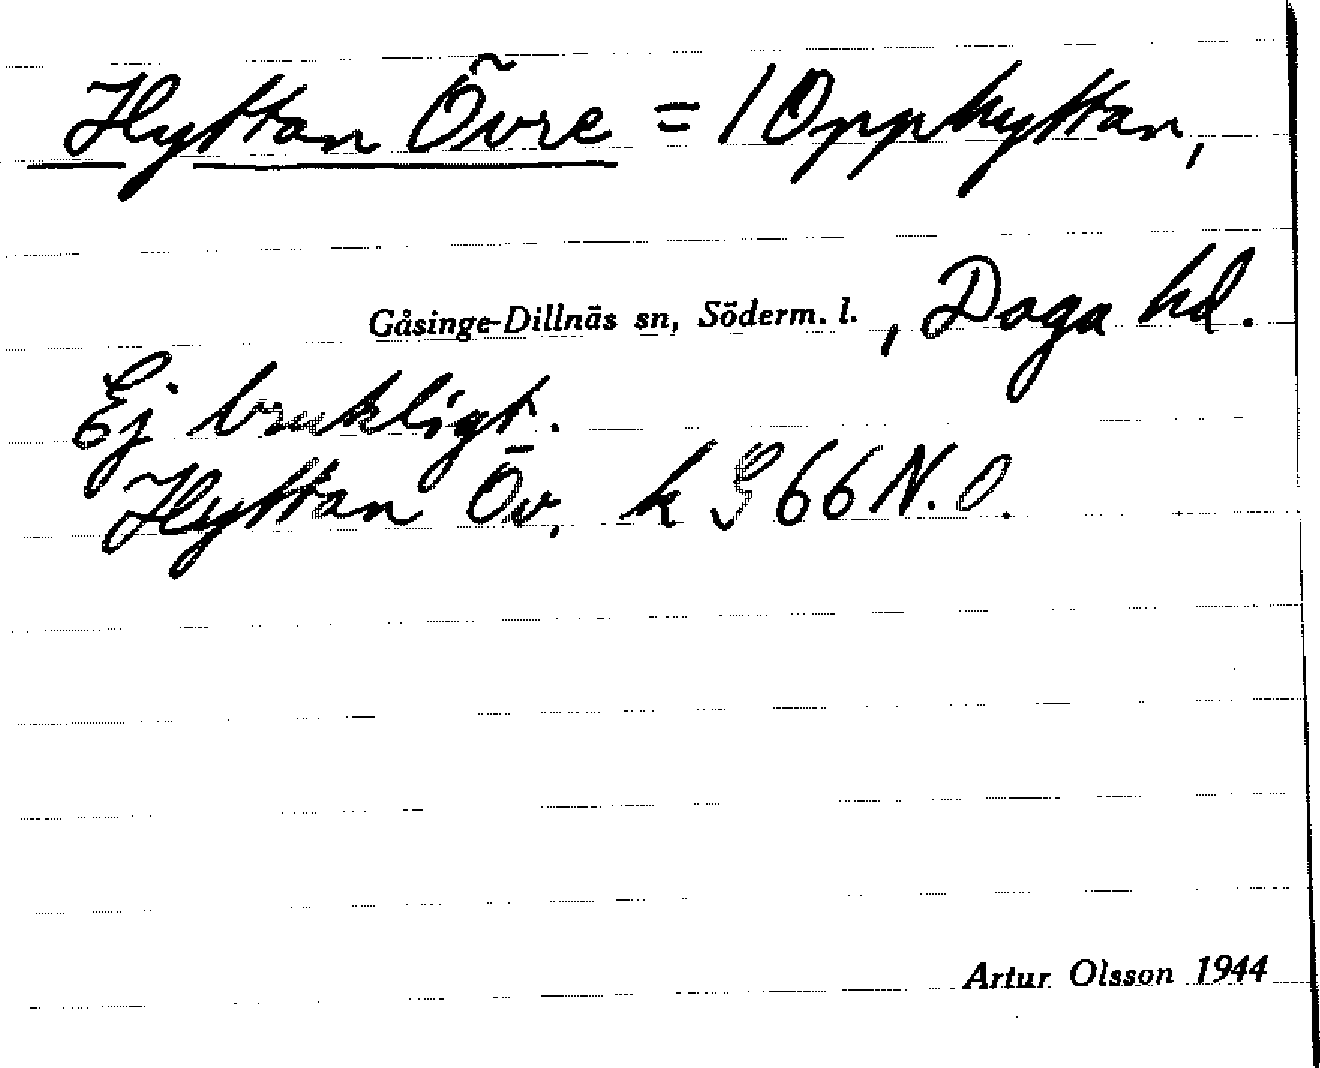 Hyttan Övre = 1 Opphyttan,
Gåsinge-Dillnäs sn, Söderm. l. , Daga hd.
Ej brukligt.
Hyttan Öv. k G 66 N.O.
Artur Olsson 1944